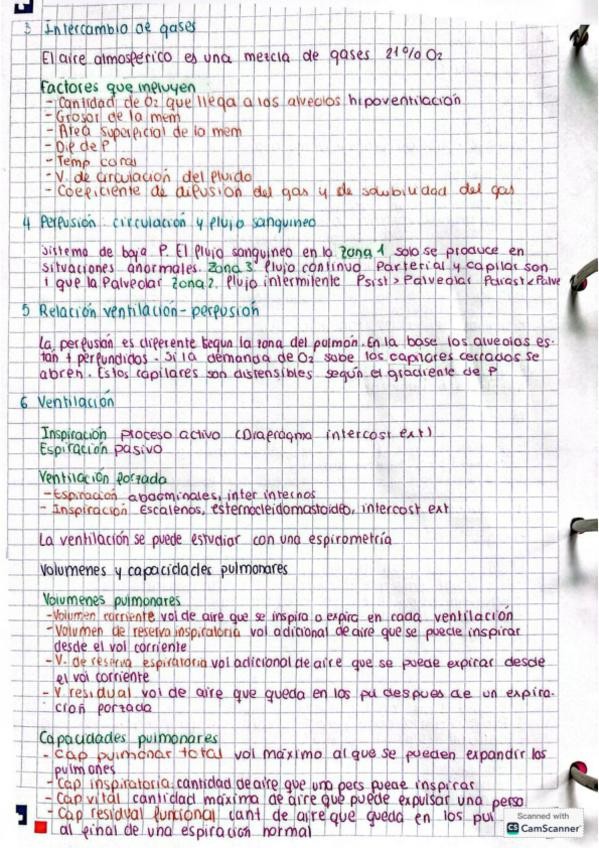 3 Intercambio de gases
El aire atmosférico es una mezcla de gases 21% O2
Factores que influyen
- Cantidad de O2 que llega a los alveolos hipoventilación
- Grosor de la mem
- Area superficial de la mem
- Dif de P
- Temp coral
- V. de circulación del fluido
- Coeficiente de difusion del gas y de solubilidad del gas
4 Perfusión: circulación y flujo sanguineo
Sistema de baja P. El flujo sanguineo en la zona 1 solo se produce en
situaciones anormales. Zona 3. flujo continuo Parterial y capilar son
↑ que la Palveolar Zona 2. flujo intermitente Psist > Palveolar Pdiast < Palve
5 Relación ventilación-perfusión
La perfusión es diferente segun la zona del pulmón. En la base los alveolos es-
tan + perfundidos. Si la demanda de O2 sube los capilares cerrados se
abren. Estos capilares son distensibles según el gradiente de P
6 Ventilación
Inspiración proceso activo (Diafragma intercost ext)
Espiración pasivo
Ventilación forzada
- Espiración abdominales, inter internos
- Inspiración Escalenos, esternocleidomastoideo, intercost ext
La ventilación se puede estudiar con una espirometría
Volumenes y capacidades pulmonares
Volumenes pulmonares
- Volumen corriente vol de aire que se inspira o expira en cada ventilación
- Volumen de reserva inspiratoria vol adicional de aire que se puede inspirar
desde el vol corriente
- V. de reserva espiratoria vol adicional de aire que se puede expirar desde
el vol corriente
- V. residual vol de aire que queda en los pu despues de un expira-
cion forzada
Capacidades pulmonares
- Cap pulmonar total vol máximo al que se pueden expandir los
pulmones
- Cap inspiratoria cantidad de aire que una pers puede inspirar
- Cap vital cantidad máxima de aire que puede expulsar una perso
- Cap residual funcional cant de aire que queda en los pul
al final de una espiración normal
Scanned with
CS CamScanner